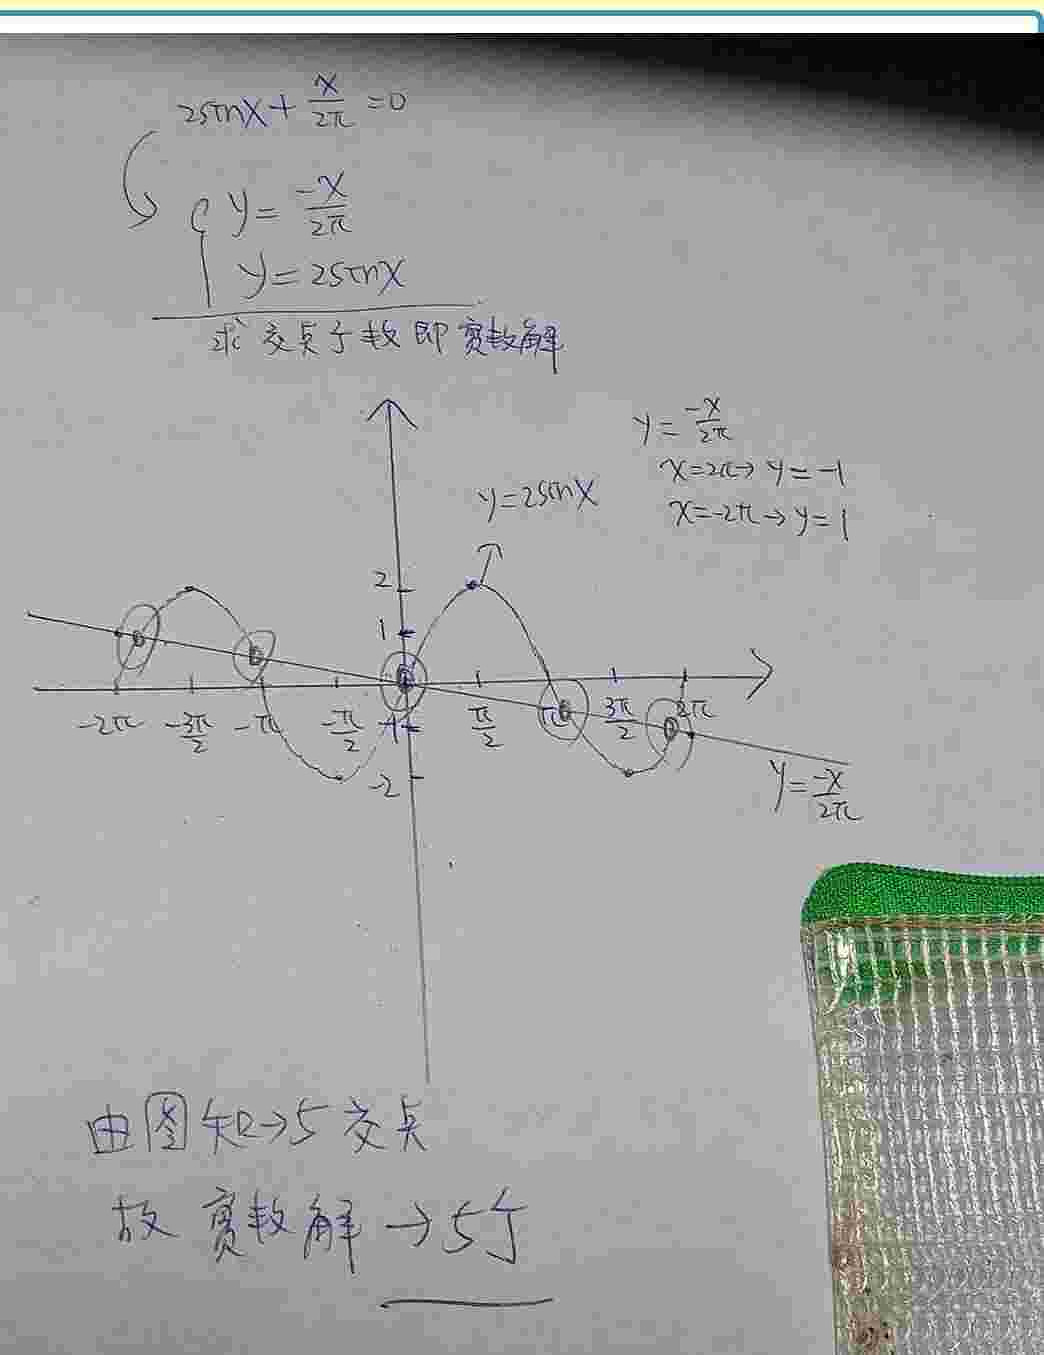 2sinx + x/2π = 0
y = -x/2π
y = 2sinx
求交点个数即實数解
y = -x/2π
x=2π→y=-1
x=-2π→y=1
y=2sinx
2
1
-2π -3π/2 -π -π/2 -1 π/2 π 3π/2 2π
-2
y = -x/2π
由图知→5交点
故實数解→5个